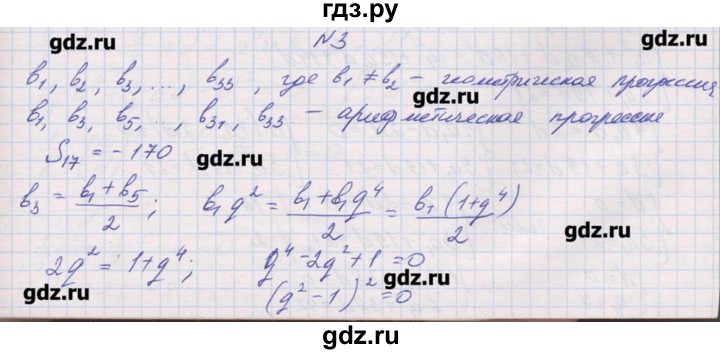 гдз.ру
gdz.ru gdz.ru
№3
b₁, b₂, b₃, ..., b₃₃, где b₁ ≠ b₂ – геометрическая прогрессия
gdz.ru
b₁, b₃, b₅, ..., b₃₁, b₃₃ – арифметическая прогрессия
S₁₇ = -170
gdz.ru
b₃ = (b₁ + b₅)/2; b₁q² = (b₁ + b₁q⁴)/2 = b₁(1+q⁴)/2
gdz.ru
2q² = 1+q⁴; q⁴ - 2q² + 1 = 0
gdz.ru gdz.ru
(q² - 1)² = 0
gdz.ru